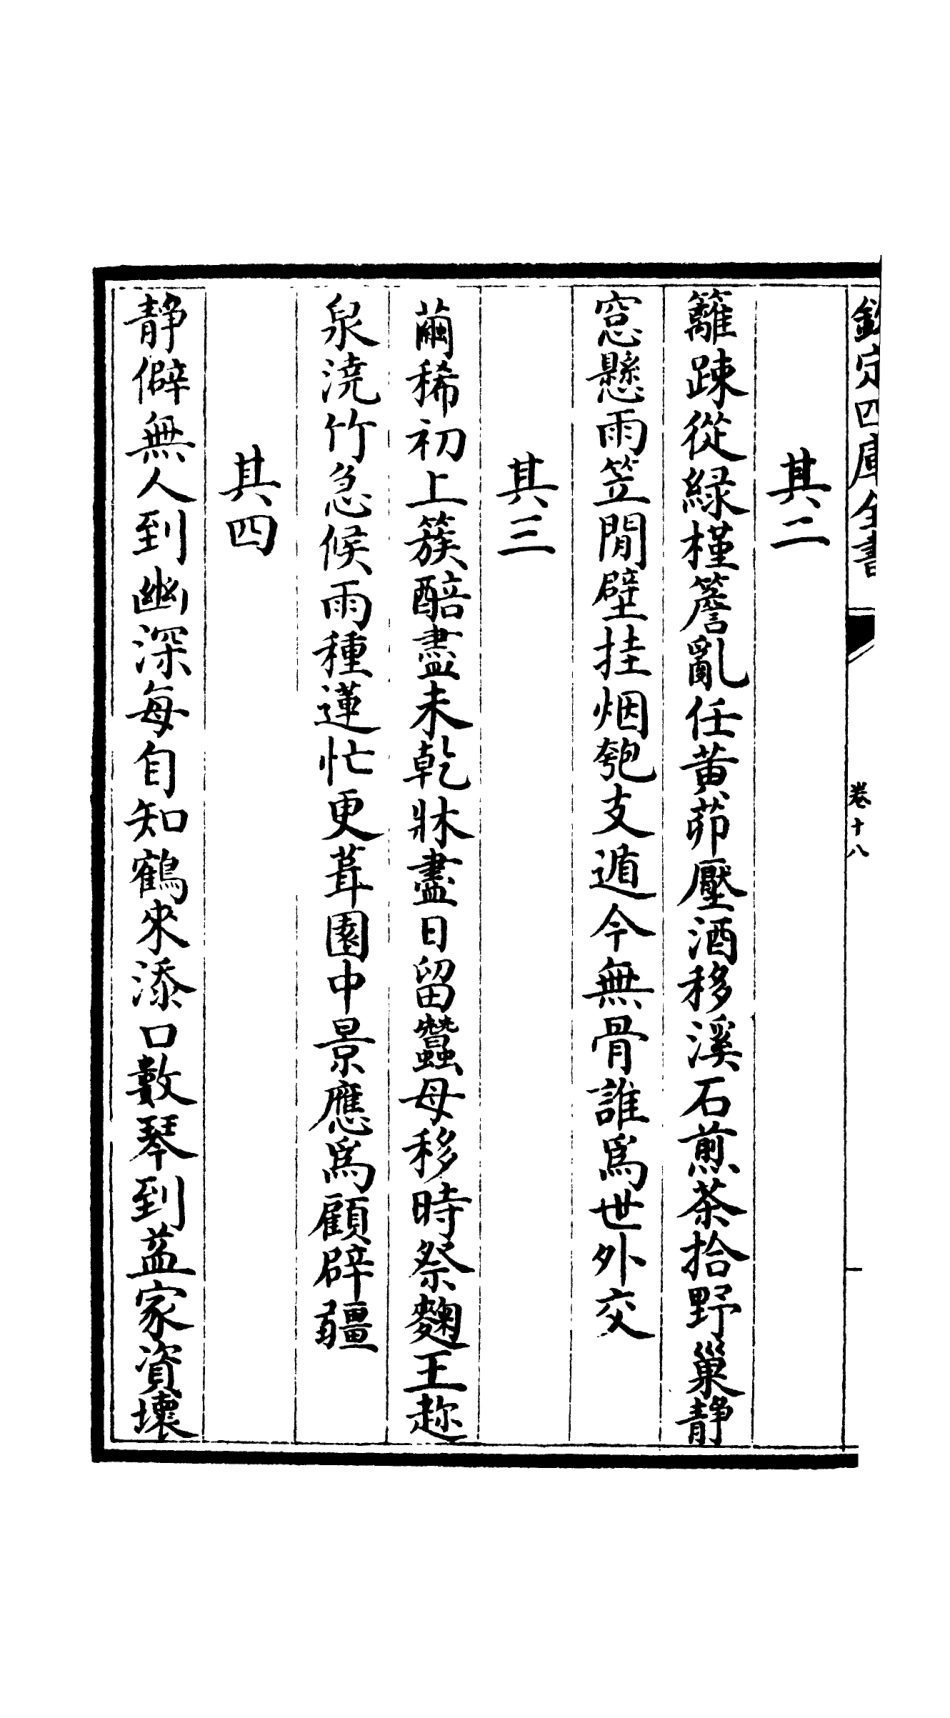 欽定四庫全書
卷十八
其二
籬踈從綠槿簷亂任黄茆壓酒移溪石煎茶拾野巢静
窓懸雨笠閒壁挂烟匏支遁今無骨誰為世外交
其三
繭稀初上簇醅盡未乾牀盡日留蠶母移時祭麴王趂
泉澆竹急候雨種蓮忙更葺園中景應為顧辟疆
其四
静僻無人到幽深每自知鶴來添口數琴到益家資壞